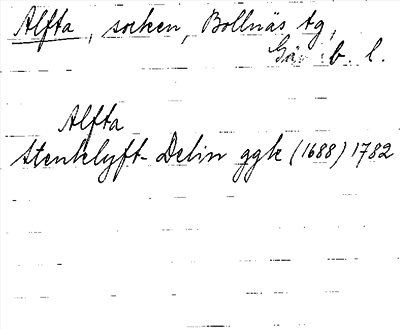 Alfta, socken, Bollnäs tg,
Gäv. b. l.
Alfta
Stenklyft- Delin ggk (1688) 1782